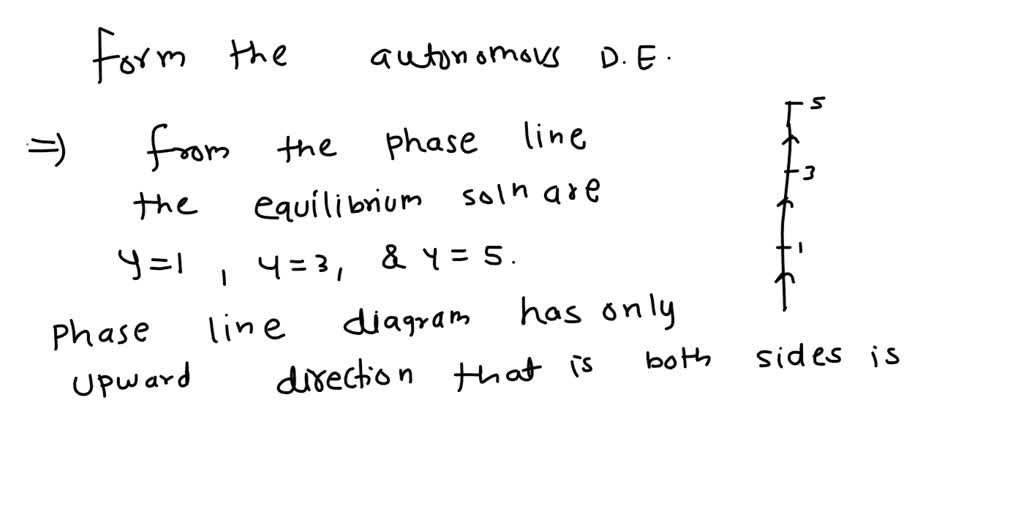 Form the autonomous D.E.
⇒ from the phase line
the equilibrium soln are
y=1, y=3, & y=5.
Phase line diagram has only
upward direction that is both sides is
5
3
1